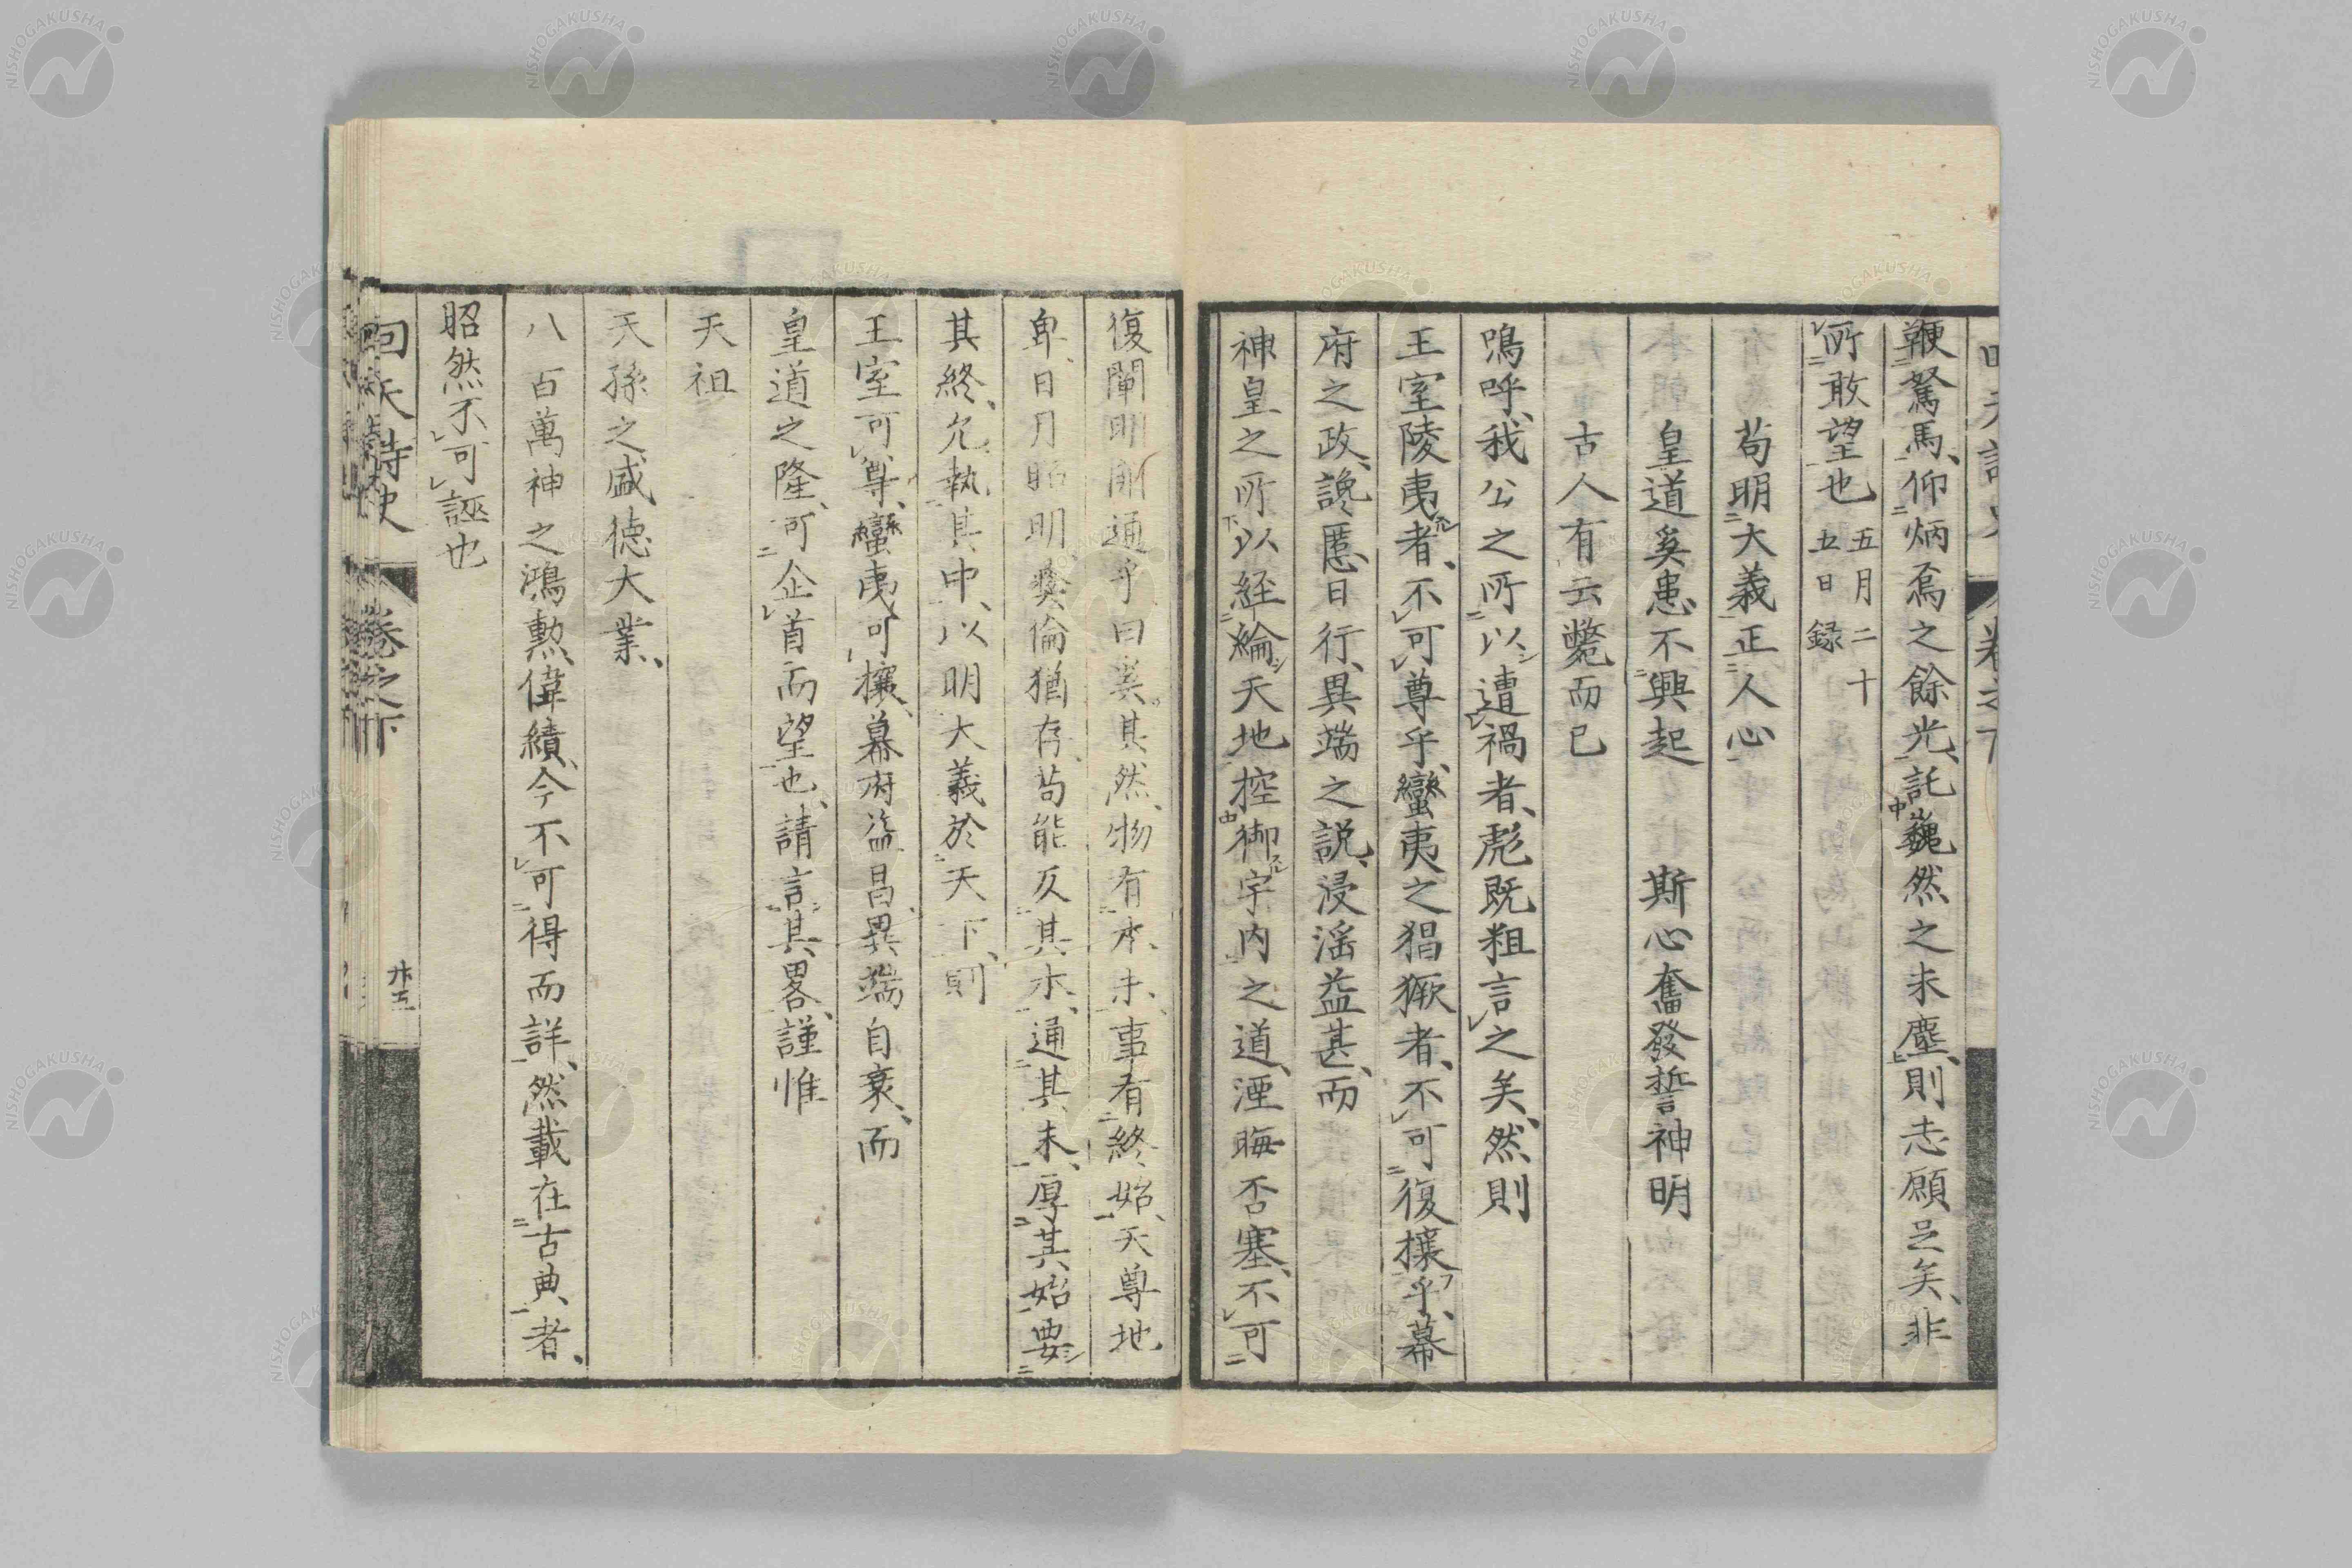 鞭駑馬、仰炳焉之餘光、託巍然之末塵、則志願足矣、非
所敢望也 五月二十五日録
苟明大義正人心
皇道奚患不興起 斯心奮發誓神明
古人有云斃而已
嗚呼、我公之所以遭禍者、彪既粗言之矣、然則
王室陵夷者、不可尊乎、蠻夷之猖獗者、不可復攘乎、幕
府之政、讒慝日行、異端之説、浸淫益甚、而
神皇之所以経綸天地控御宇内之道、湮晦否塞、不可
復闡明開通乎曰奚其然、物有本末、事有終始、天尊地
卑、日月昭明彝倫猶存、苟能反其本、通其末、厚其始、要
其終、允執其中、以明大義於天下、則
王室可尊、蠻夷可攘、幕府益昌異端自衰、而
皇道之隆、可企首而望也、請言其畧、謹惟
天祖
天孫之盛德大業、
八百萬神之鴻勲、偉績、今不可得而詳、然載在古典者、
昭然不可誣也
回天詩史 巻之下 廿五
NISHOGAKUSHA